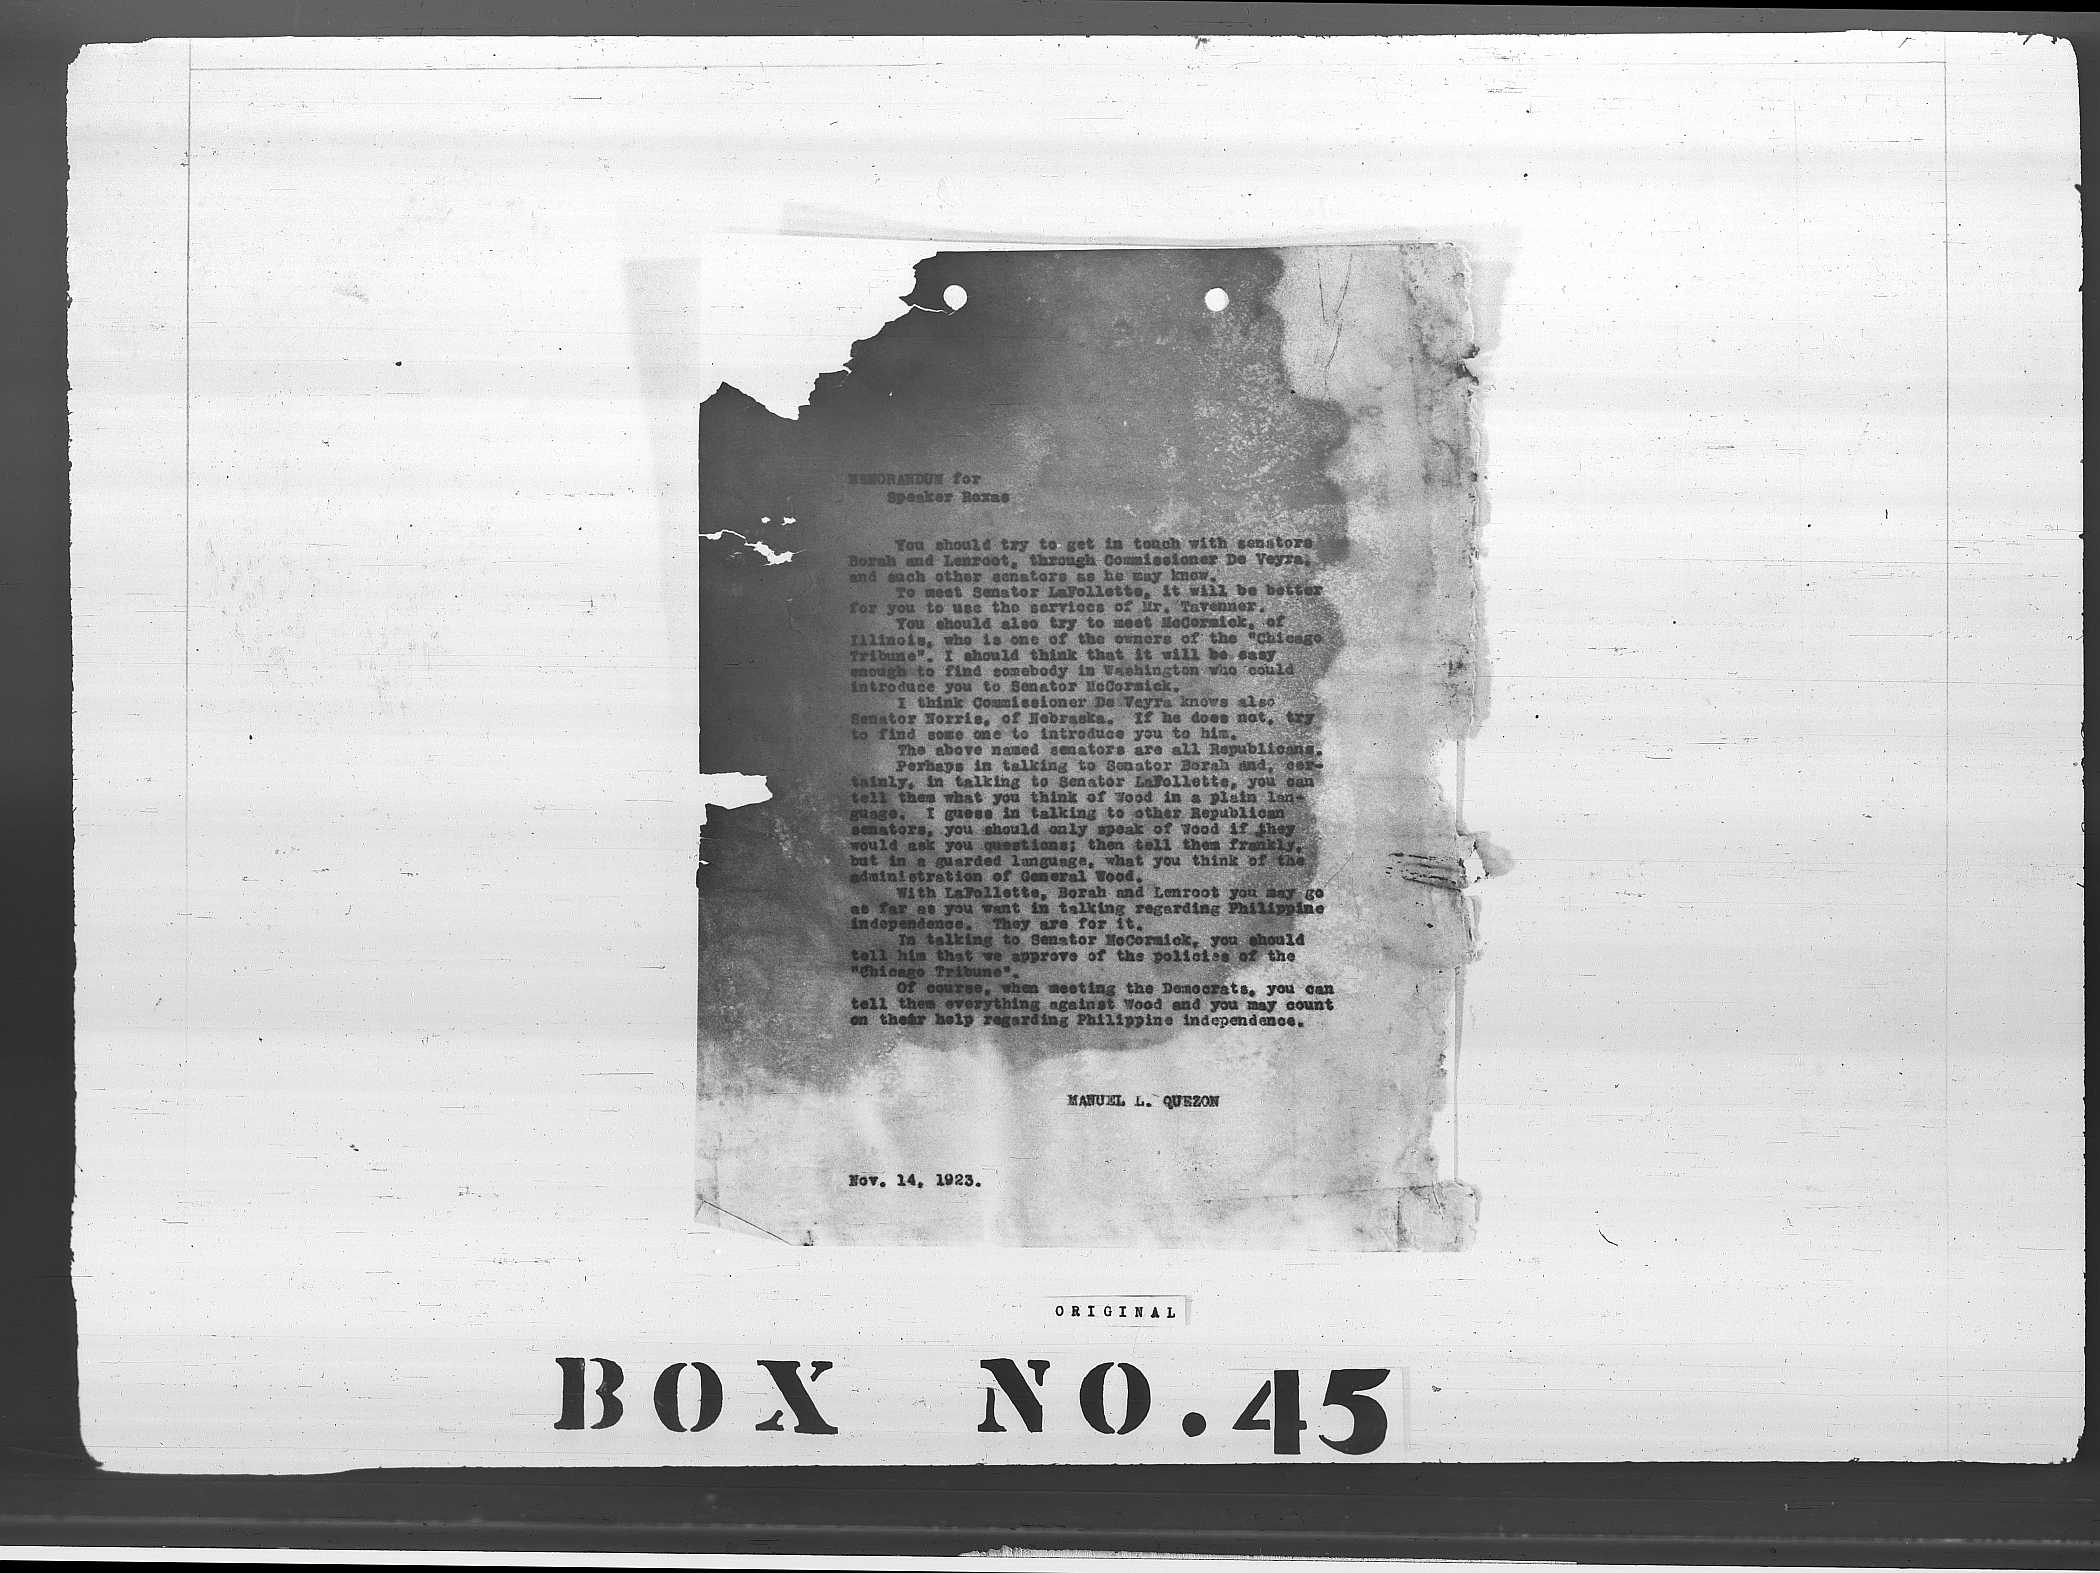 MEMORANDUM for
Speaker Roxas
You should try to get in touch with senators
Borah and Lenroot, through Commissioner De Veyra,
and such other senators as he may know.
To meet Senator LaFollette, it will be better
for you to use the services of Mr. Tavenner.
You should also try to meet McCormick, of
Illinois, who is one of the owners of the "Chicago
Tribune". I should think that it will be easy
enough to find somebody in Washington who could
introduce you to Senator McCormick.
I think Commissioner De Veyra knows also
Senator Norris, of Nebraska. If he does not, try
to find some one to introduce you to him.
The above named senators are all Republicans.
Perhaps in talking to Senator Borah and, cer-
tainly, in talking to Senator LaFollette, you can
tell them what you think of Wood in a plain lan-
guage. I guess in talking to other Republican
senators, you should only speak of Wood if they
would ask you questions; then tell them frankly,
but in a guarded language, what you think of the
administration of General Wood.
With LaFollette, Borah and Lenroot you may go
as far as you want in talking regarding Philippine
independence. They are for it.
In talking to Senator McCormick, you should
tell him that we approve of the policies of the
"Chicago Tribune".
Of course, when meeting the Democrats, you can
tell them everything against Wood and you may count
on their help regarding Philippine independence.
MANUEL L. QUEZON
Nov. 14, 1923.
ORIGINAL
BOX NO. 45